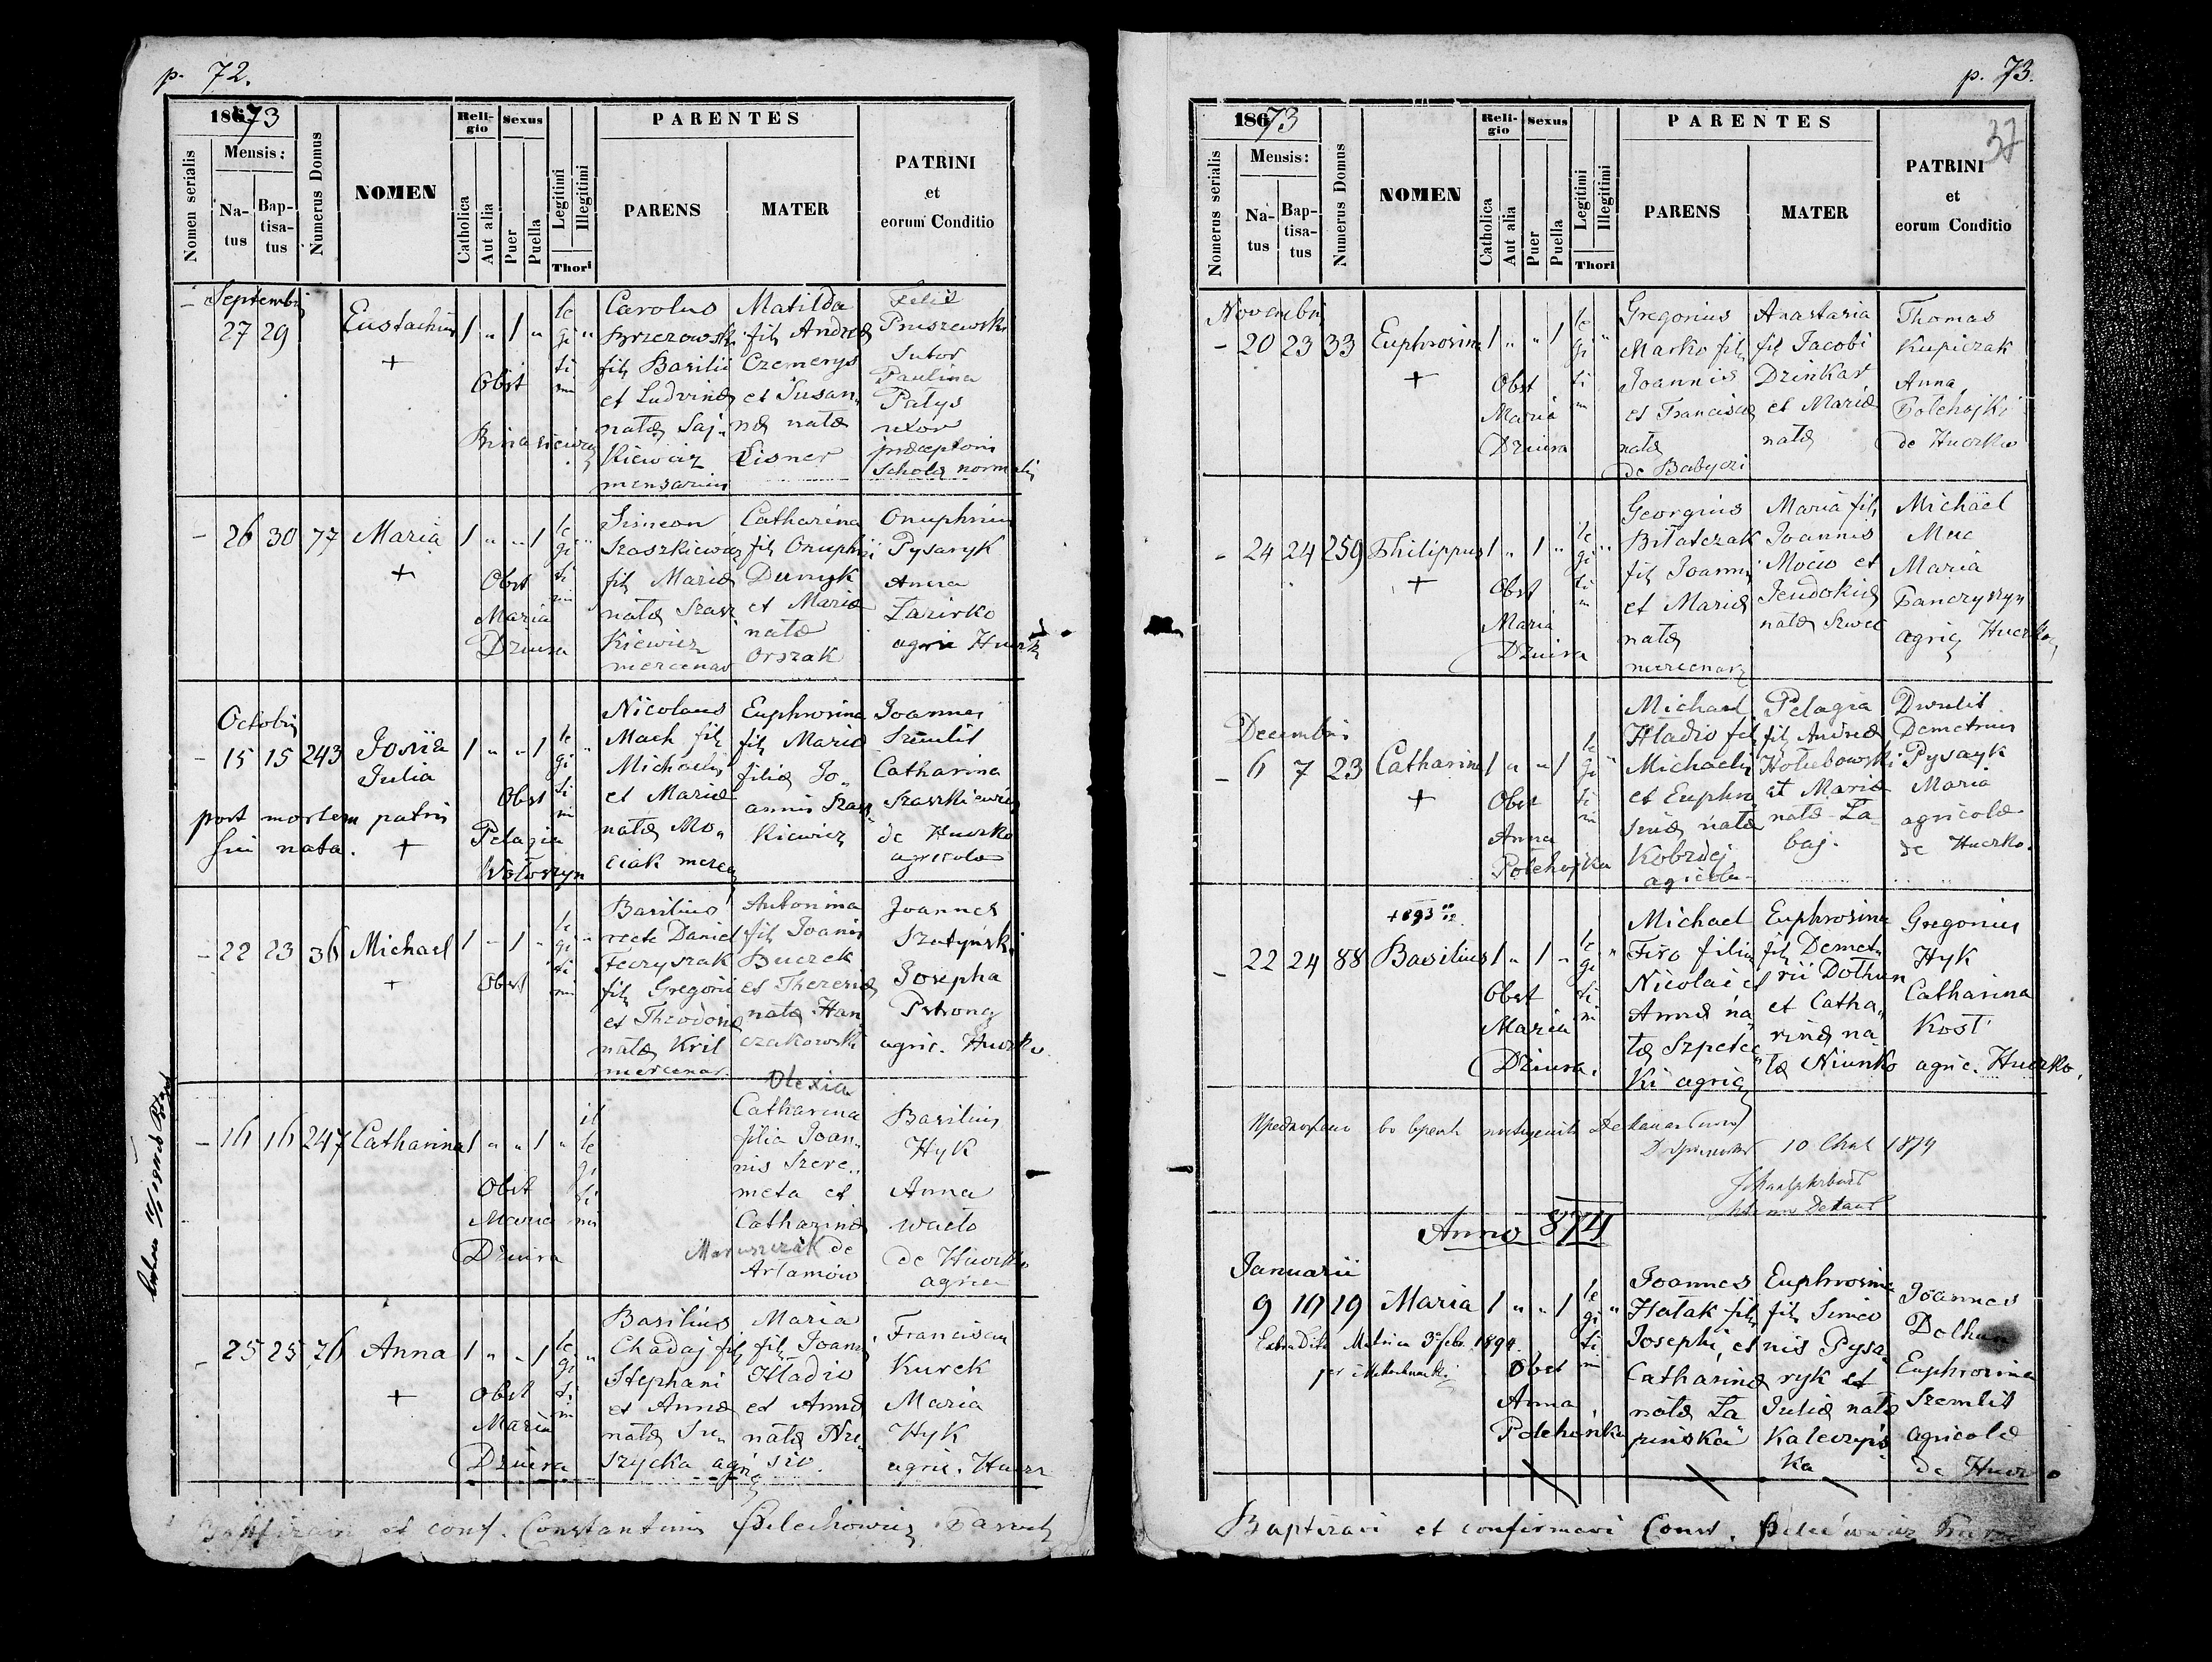 p. 72.
186 73
Nomen serialis
Mensis:
Natus
Baptisatus
Numerus Domus
NOMEN
Religio
Catholica
Aut alia
Sexus
Puer
Puella
Legitimi
Illegitimi
Thori
PARENTES
PARENS
MATER
PATRINI
et
eorum Conditio
Septembri
27 29 Eustachius 1 " 1 " le gi ti mi "
+
Obst
Carolus
Brzezowski
filz Basilii
et Ludvinæ
natæ Saj-
kiewicz
mensarius
Matilda
filz Andreæ
Czemerys
et Susan-
næ natæ
Lisner
Felix
Pruszewski
Sutor
Paulina
Patys
uxor
præceptoris
Scholæ normalis
- 26 30 77 Maria 1 " " 1 le gi ti mi "
+
Obst
Maria
Dziura
Simeon
Szaszkiewicz
filz Mariæ
natæ Szasz
kiewicz
mercenar
Catharina
filz Onuphrii
Dumyk
et Mariæ
natæ
Orszak
Onuphrius
Pysaryk
Anna
Łazirko
agric Hurk
Octobris
- 15 15 243 Julia 1 " " 1 le gi ti mi "
post mortem patris
sui nata. +
Obst
Pelagia
Wołoszyn
Nicolaus
Mach filz
Michaelis
et Mariæ
natæ Mo-
ciak mercen
Euphrosina
filz Mariæ
filiæ Jo-
annis Szasz
kiewicz
Joannes
Szemlit
Catharina
Szaszkiewicz
de Hurko
agricolæ
- 22 23 36 Michael 1 - 1 " le gi ti mi "
+
Obst
Basilius
recte Daniel
Fedryszak
filz Gregorii
et Theodoriæ
natæ Kril
mercenar.
Antonina
filz Joannis
Buczek
et Theresiæ
natæ Han
czakowski
Joannes
Szatyński
Josepha
Pstrong
agric. Hurko
- 16 16 247 Catharina 1 " " 1 " il le gi ti mi
Obst
Maria
Dziura
Olexia
Catharina
filia Joan-
nis Szere-
meta et
Catharinæ
Maruszczak de
Artamów
Basilius
Hyk
Anna
Wacto
de Hurko
agric
- 25 25 76 Anna 1 " " 1 le gi ti mi "
+
Obst
Maria
Dziura
Basilius
Chadaj filz
Stephani
et Annæ
natæ Sze-
szycka agric
Maria
filz Joannis
Hladio
et Annæ
Franciscus
Kurek
Maria
Hyk
agric. Hurk
Baptisavi et conf. Constantinus
p. 73.
37
186 73
Nomerus serialis
Mensis:
Natus
Baptisatus
Numerus Domus
NOMEN
Religio
Catholica
Aut alia
Sexus
Puer
Puella
Legitimi
Illegitimi
Thori
PARENTES
PARENS
MATER
PATRINI
et
eorum Conditio
Novembris
- 20 23 33 Euphrosina 1 " " 1 le gi ti m "
+
Obst
Maria
Dziura
Gregorius
Marko filz
Joannis
et Franciscæ
natæ
de Babyczi
Anastasia
filz Jacobi
Dzinkar
et Mariæ
natæ
Thomas
Kupiczak
Anna
Polchojki
de Hurko
- 24 24 259 Philippus 1 " 1 " le gi ti m "
+
Obst
Maria
Dziura
Georgius
Bilatczak
filz Joannis
et Mariæ
natæ
mercenarz
Maria filz
Joannis
Mocio et
Jeudokiæ
natæ Szwec
Michael
Muc
Maria
Panczyszyn
agric Hurko
Decembris
- 6 7 23 Catharina 1 " " 1 le gi ti m "
+
Obst
Anna
Polchojka
Michael
Hladio fil
Michaelis
et Euphro
sinæ natæ
Kobrdej
agricola
Pelagia
filz Andreæ
Hołubowski
et Mariæ
natæ Za-
baj.
Demetrius
Pysaryk
Maria
agricolæ
de Hurko.
+893
- 22 24 88 Basilius 1 " 1 " le gi ti m "
Obst
Maria
Dziura.
Michael
Firo filius
Nicolai et
Annæ na
tæ Szpetec
ki agric
Euphrosina
filz Deme-
rii Dothun
et Catha-
rinæ na-
tæ Niunko
Gregorius
Hyk
Catharina
Kost
agric. Hurko.
10 1874
Anno 874
Januarii
9 10 19 Maria 1 " " 1 le gi ti m "
1894
Obst
Anna
Polchojka
Joannes
Hatak filz
Josephi, et
Catharinæ
natæ Ła
pinska
Euphrosina
filz Simeo
nis Pysa-
ryk et
Juliæ natæ
Kaleczyńs
ka
Joannes
Dolhun
Euphrosina
Szemlit
agricolæ
de Hurko
Baptizavi et confirmavi Const.